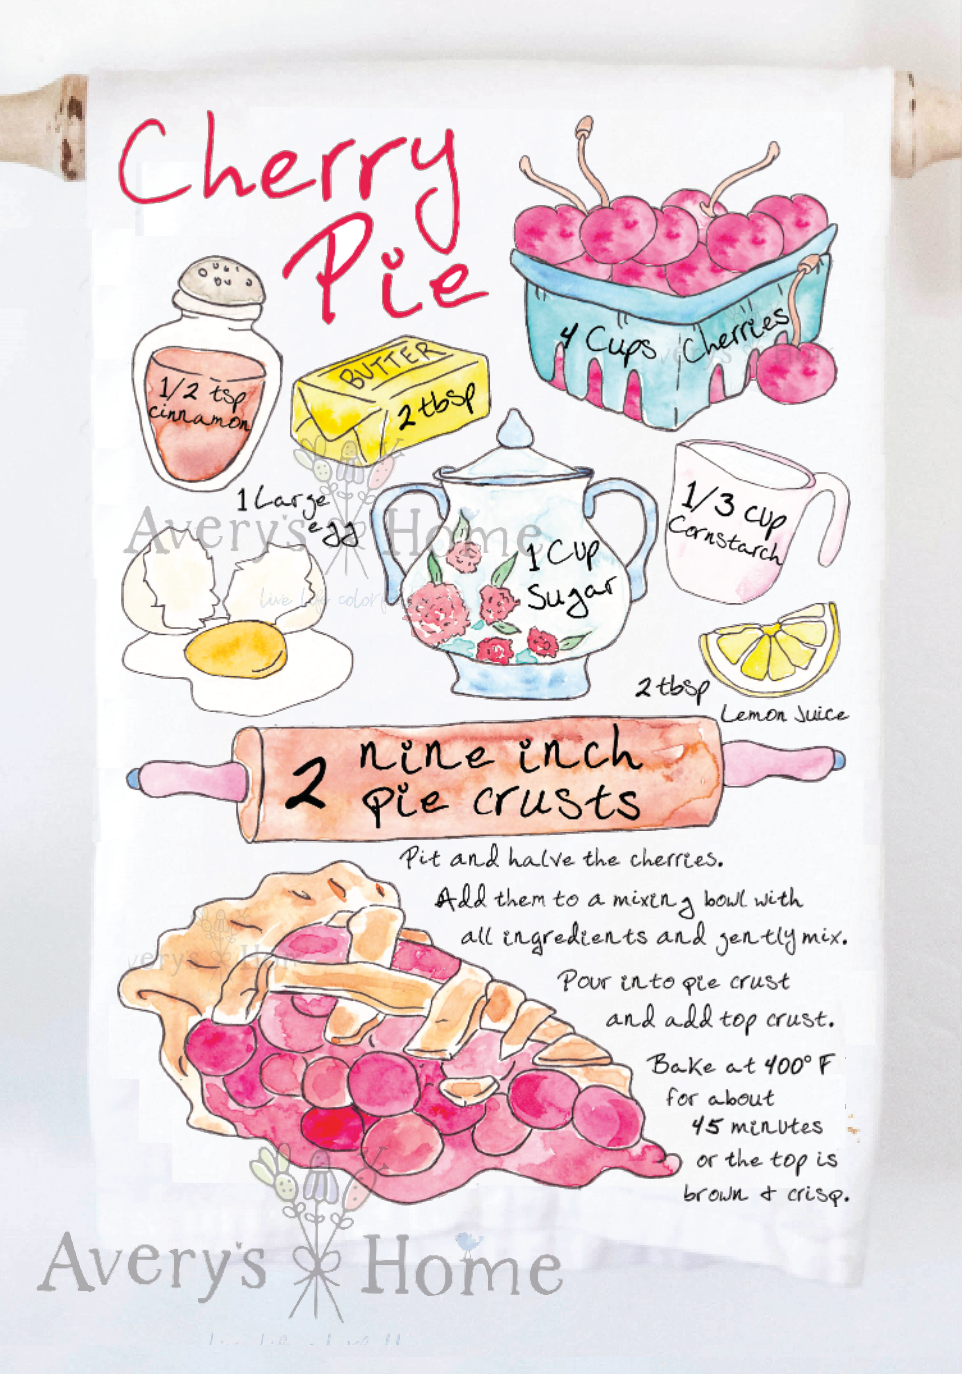 Cherry
Pie
4 Cups Cherries
1/2 tsp
cinnamon
BUTTER
2 tbsp
1 Large
egg
1 Cup
Sugar
1/3 cup
Cornstarch
2 tbsp
Lemon Juice
2 nine inch
pie crusts
Pit and halve the cherries.
Add them to a mixing bowl with
all ingredients and gently mix.
Pour into pie crust
and add top crust.
Bake at 400° F
for about
45 minutes
or the top is
brown & crisp.
Avery's Home
live life colorfully
Avery's Home
Avery's Home